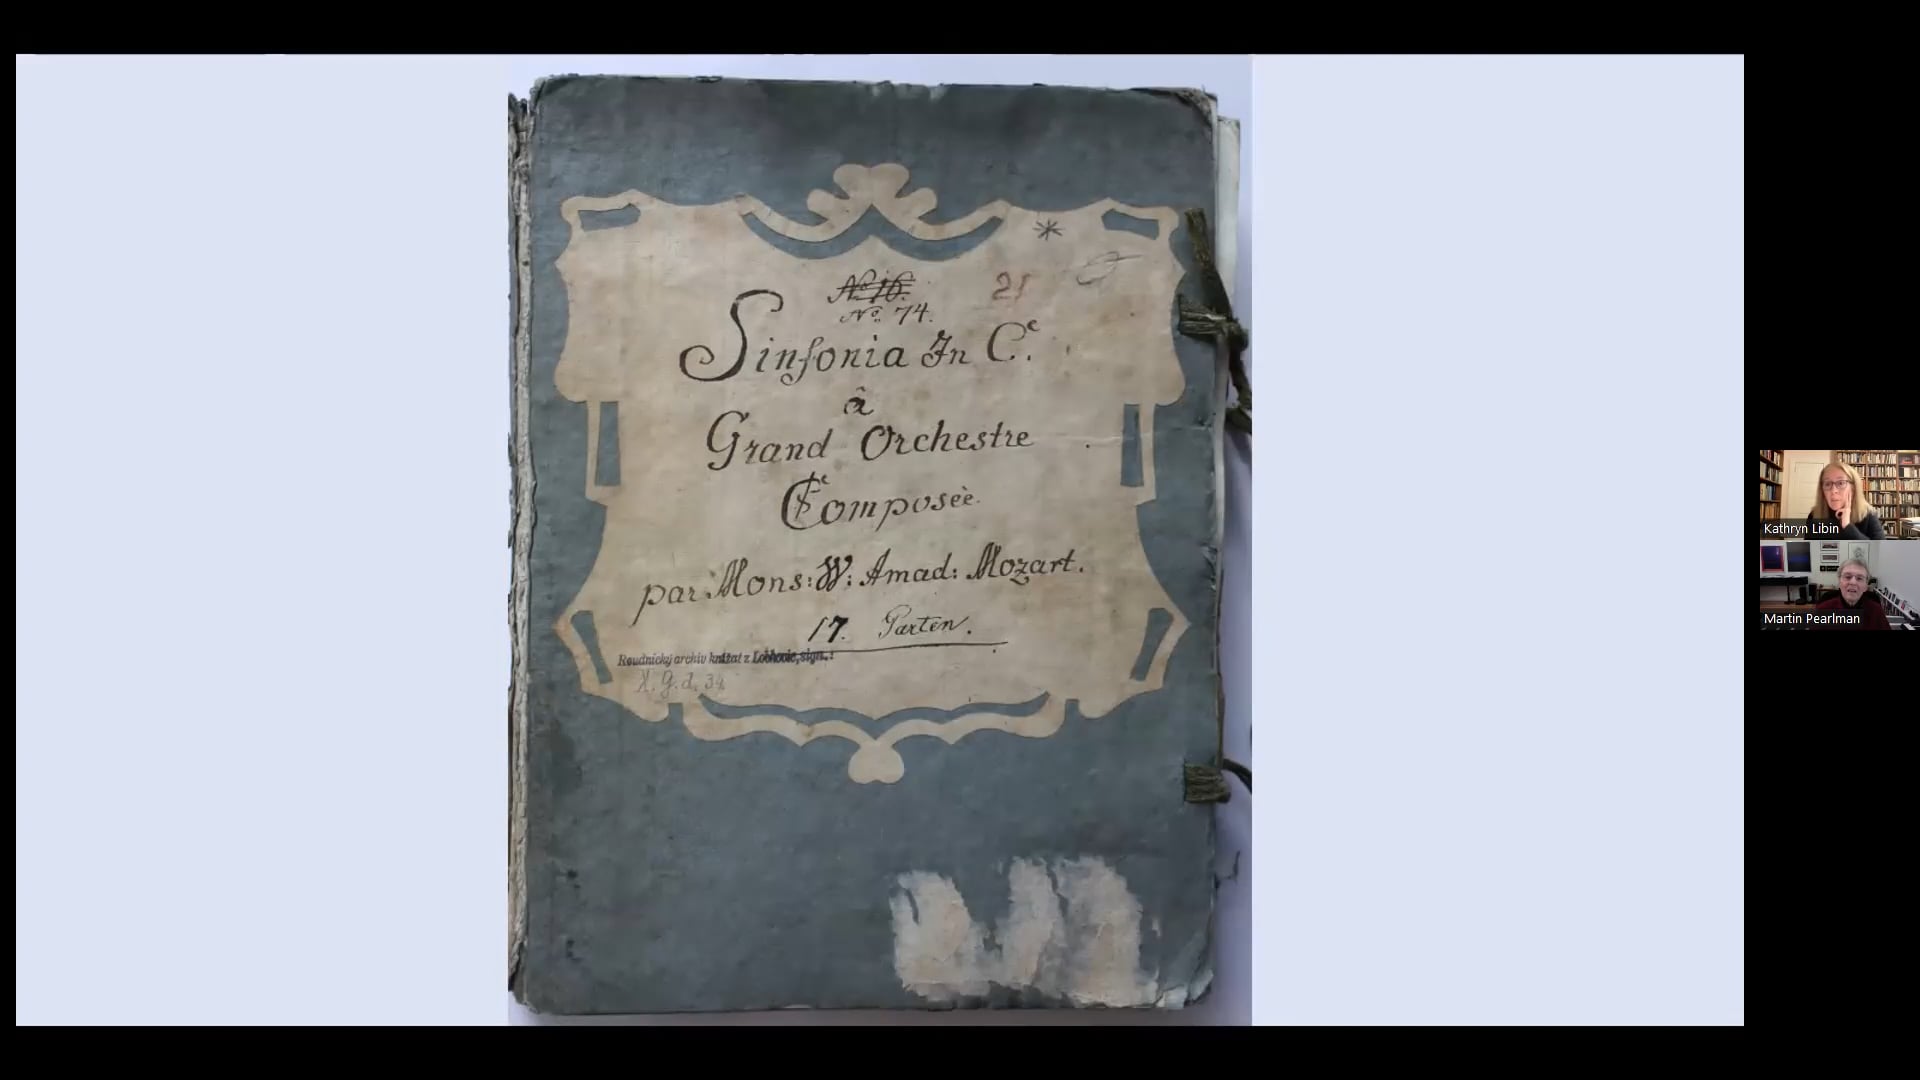 No. 16.
No. 74.
21
Sinfonia In C.
â
Grand Orchestre
Composeè
par Mons: W: Amad: Mozart.
17. Parten.
Roudnický archiv knížat z Lobkovic, sign.:
X. G. d. 34
Kathryn Libin
Martin Pearlman